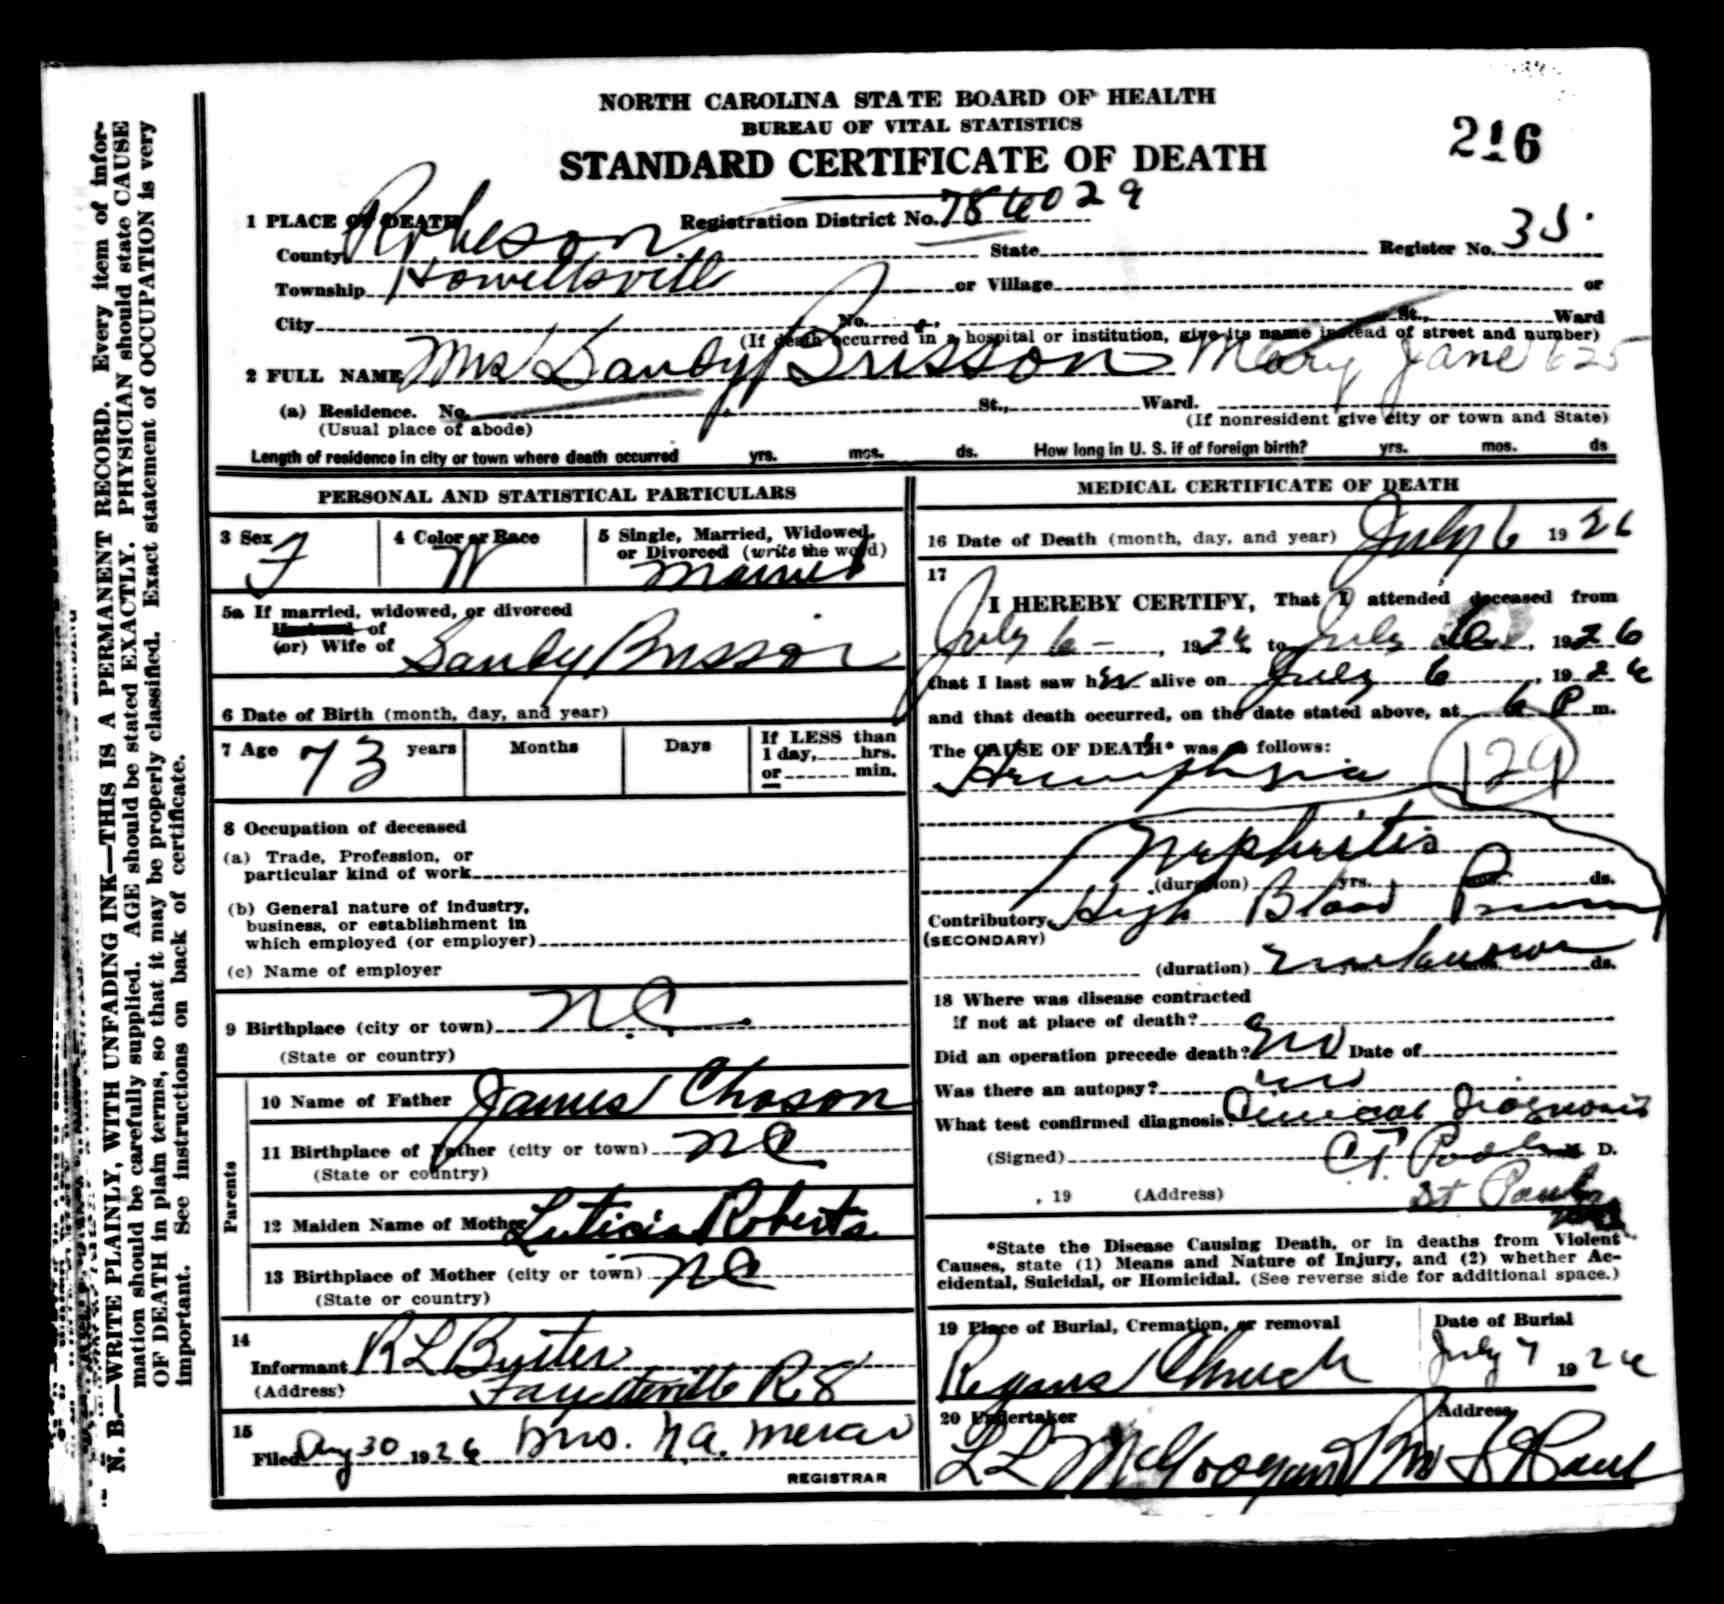 NORTH CAROLINA STATE BOARD OF HEALTH
BUREAU OF VITAL STATISTICS
STANDARD CERTIFICATE OF DEATH
216
1 PLACE OF DEATH
Registration District No. 786029
County Robeson State Register No. 35.
Township Howellsville or Village or
City No. St., Ward
(If death occurred in a hospital or institution, give its name instead of street and number)
2 FULL NAME Mrs Sandy Brisson Mary Jane 625
(a) Residence. No. St., Ward.
(Usual place of abode) (If nonresident give city or town and State)
Length of residence in city or town where death occurred yrs. mos. ds. How long in U. S. if of foreign birth? yrs. mos. ds
PERSONAL AND STATISTICAL PARTICULARS
3 Sex F
4 Color or Race W
5 Single, Married, Widowed,
or Divorced (write the word)
Married
5a If married, widowed, or divorced
Husband of
(or) Wife of Sandy Brisson
6 Date of Birth (month, day, and year)
7 Age 73 years Months Days
If LESS than
1 day, hrs.
or min.
8 Occupation of deceased
(a) Trade, Profession, or
particular kind of work
(b) General nature of industry,
business, or establishment in
which employed (or employer)
(c) Name of employer
9 Birthplace (city or town) N.C.
(State or country)
Parents
10 Name of Father James Chason
11 Birthplace of Father (city or town) NC
(State or country)
12 Maiden Name of Mother Luticia Roberts
13 Birthplace of Mother (city or town) NC
(State or country)
14
Informant R L
(Address) Fayetteville R 8
15
Filed Aug 30 1926 Mrs. N.A.
REGISTRAR
MEDICAL CERTIFICATE OF DEATH
16 Date of Death (month, day, and year) July 6 1926
17
I HEREBY CERTIFY, That I attended deceased from
July 6 - , 1926 to July 6 , 1926
that I last saw her alive on July 6 , 1926
and that death occurred, on the date stated above, at 6 P m.
The CAUSE OF DEATH* was as follows:
129
Nephritis
(duration) yrs. mos. ds.
Contributory High Blood Pressure
(SECONDARY)
(duration) unknown yrs. mos. ds.
18 Where was disease contracted
if not at place of death?
Did an operation precede death? No Date of
Was there an autopsy? No
What test confirmed diagnosis? Clinical Diagnosis
(Signed) M. D.
, 19 (Address) St Pauls
*State the Disease Causing Death, or in deaths from Violent
Causes, state (1) Means and Nature of Injury, and (2) whether Ac-
cidental, Suicidal, or Homicidal. (See reverse side for additional space.)
19 Place of Burial, Cremation, or removal
Regans Church
Date of Burial
July 7 1926
20 Undertaker
L L McGoogan
Address
St Paul
N. B.—WRITE PLAINLY, WITH UNFADING INK—THIS IS A PERMANENT RECORD. Every item of infor-
mation should be carefully supplied. AGE should be stated EXACTLY. PHYSICIAN should state CAUSE
OF DEATH in plain terms, so that it may be properly classified. Exact statement of OCCUPATION is very
important. See instructions on back of certificate.